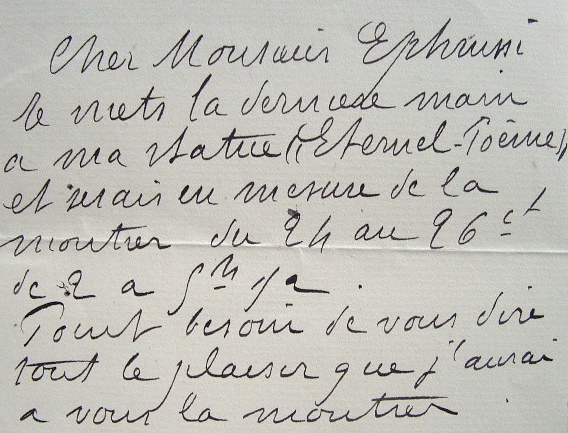 Cher Monsieur Ephrussi
Je mets la derniere main
a ma statue (Eternel-Poème)
et serais en mesure de la
montrer du 24 au 26 ct
de 2 a 5h 1/2.
Point besoin de vous dire
tout le plaisir que j'aurai
a vous la montrer